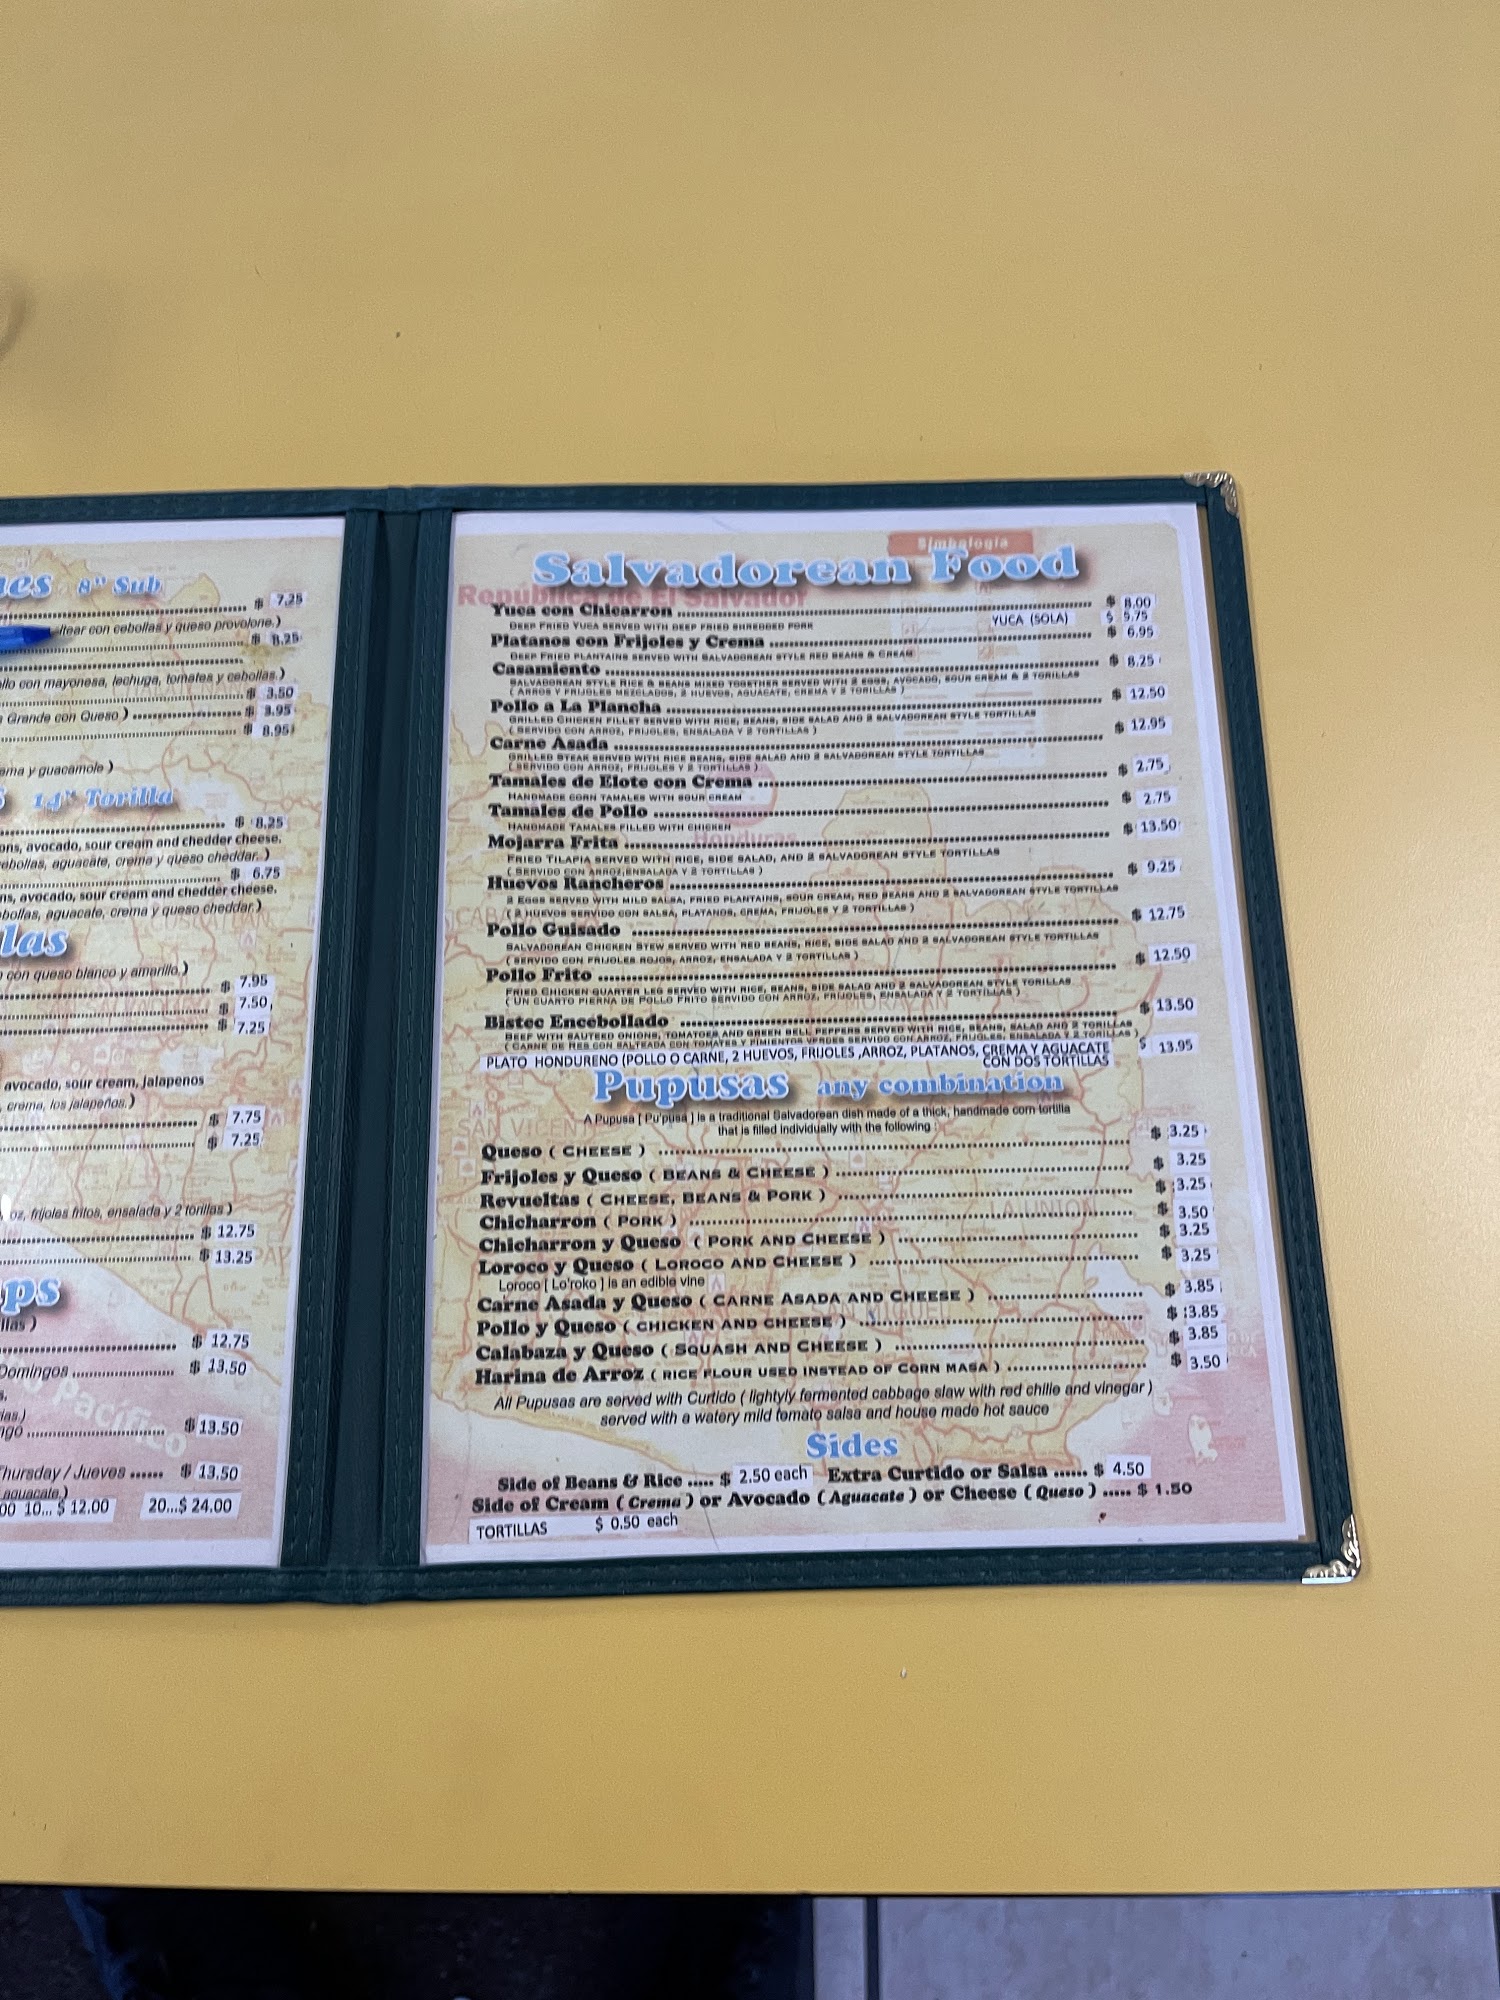 8" Sub
$ 7.25
ltear con cebollas y queso provolone.)
$ 8.25
llo con mayonesa, lechuga, tomates y cebollas.)
$ 3.50
Grande con Queso ) $ 3.95
$ 8.95
ema y guacamole )
14" Torilla
$ 8.25
ons, avocado, sour cream and chedder cheese.
ebollas, aguacate, crema y queso cheddar. )
$ 6.75
ns, avocado, sour cream and chedder cheese.
bollas, aguacate, crema y queso cheddar.)
las
con queso blanco y amarillo.)
$ 7.95
$ 7.50
$ 7.25
avocado, sour cream, jalapenos
, crema, los jalapeños.)
$ 7.75
$ 7.25
oz, frijoles fritos, ensalada y 2 torillas )
$ 12.75
$ 13.25
ps
llas )
$ 12.75
Domingos $ 13.50
ngo $ 13.50
Thursday / Jueves ...... $ 13.50
aguacate.)
00 10... $ 12.00 20...$ 24.00
Simbología
República de El Salvador
Salvadorean Food
Yuca con Chicarron $ 8.00
DEEP FRIED YUCA SERVED WITH DEEP FRIED SHREDDED PORK YUCA (SOLA) $ 5.75
Platanos con Frijoles y Crema $ 6.95
DEEP FRIED PLANTAINS SERVED WITH SALVADOREAN STYLE RED BEANS & CREAM
Casamiento $ 8.25
SALVADOREAN STYLE RICE & BEANS MIXED TOGETHER SERVED WITH 2 EGGS, AVOCADO, SOUR CREAM & 2 TORTILLAS
( ARROS Y FRIJOLES MEZCLADOS, 2 HUEVOS, AGUACATE, CREMA Y 2 TORTILLAS )
Pollo a La Plancha $ 12.50
GRILLED CHICKEN FILLET SERVED WITH RICE, BEANS, SIDE SALAD AND 2 SALVADOREAN STYLE TORTILLAS
( SERVIDO CON ARROZ, FRIJOLES, ENSALADA Y 2 TORTILLAS )
Carne Asada $ 12.95
GRILLED STEAK SERVED WITH RICE BEANS, SIDE SALAD AND 2 SALVADOREAN STYLE TORTILLAS
( SERVIDO CON ARROZ, FRIJOLES Y 2 TORTILLAS )
Tamales de Elote con Crema $ 2.75
HANDMADE CORN TAMALES WITH SOUR CREAM
Tamales de Pollo $ 2.75
HANDMADE TAMALES FILLED WITH CHICKEN
Mojarra Frita $ 13.50
FRIED TILAPIA SERVED WITH RICE, SIDE SALAD, AND 2 SALVADOREAN STYLE TORTILLAS
( SERVIDO CON ARROZ,ENSALADA Y 2 TORTILLAS )
Huevos Rancheros $ 9.25
2 EGGS SERVED WITH MILD SALSA, FRIED PLANTAINS, SOUR CREAM, RED BEANS AND 2 SALVADOREAN STYLE TORTILLAS
( 2 HUEVOS SERVIDO CON SALSA, PLATANOS, CREMA, FRIJOLES Y 2 TORTILLAS )
Pollo Guisado $ 12.75
SALVADOREAN CHICKEN STEW SERVED WITH RED BEANS, RICE, SIDE SALAD AND 2 SALVADOREAN STYLE TORTILLAS
( SERVIDO CON FRIJOLES ROJOS, ARROZ, ENSALADA Y 2 TORTILLAS )
Pollo Frito $ 12.50
FRIED CHICKEN QUARTER LEG SERVED WITH RICE, BEANS, SIDE SALAD AND 2 SALVADOREAN STYLE TORTILLAS
( UN CUARTO PIERNA DE POLLO FRITO SERVIDO CON ARROZ, FRIJOLES, ENSALADA Y 2 TORTILLAS )
Bistec Encebollado $ 13.50
BEEF WITH SAUTEED ONIONS, TOMATOES AND GREEN BELL PEPPERS SERVED WITH RICE, BEANS, SALAD AND 2 TORILLAS
( CARNE DE RES CON SALTEADA CON TOMATES Y PIMIENTOS VERDES SERVIDO CON ARROZ, FRIJOLES, ENSALADA Y 2 TORILLAS )
PLATO HONDURENO (POLLO O CARNE, 2 HUEVOS, FRIJOLES ,ARROZ, PLATANOS, CREMA Y AGUACATE $ 13.95
CON DOS TORTILLAS
Pupusas any combination
A Pupusa [ Pu'pusa ] is a traditional Salvadorean dish made of a thick, handmade corn tortilla
that is filled individually with the following :
Queso ( CHEESE ) $ 3.25
Frijoles y Queso ( BEANS & CHEESE ) $ 3.25
Revueltas ( CHEESE, BEANS & PORK ) $ 3.25
Chicharron ( PORK ) $ 3.50
Chicharron y Queso ( PORK AND CHEESE ) $ 3.25
Loroco y Queso ( LOROCO AND CHEESE ) $ 3.25
Loroco [ Lo'roko ] is an edible vine
Carne Asada y Queso ( CARNE ASADA AND CHEESE ) $ 3.85
Pollo y Queso ( CHICKEN AND CHEESE ) $ 3.85
Calabaza y Queso ( SQUASH AND CHEESE ) $ 3.85
Harina de Arroz ( RICE FLOUR USED INSTEAD OF CORN MASA ) $ 3.50
All Pupusas are served with Curtido ( lightyly fermented cabbage slaw with red chilie and vinegar )
served with a watery mild tomato salsa and house made hot sauce
Sides
Side of Beans & Rice ..... $ 2.50 each Extra Curtido or Salsa ...... $ 4.50
Side of Cream ( Crema ) or Avocado ( Aguacate ) or Cheese ( Queso ) ..... $ 1.50
TORTILLAS $ 0.50 each